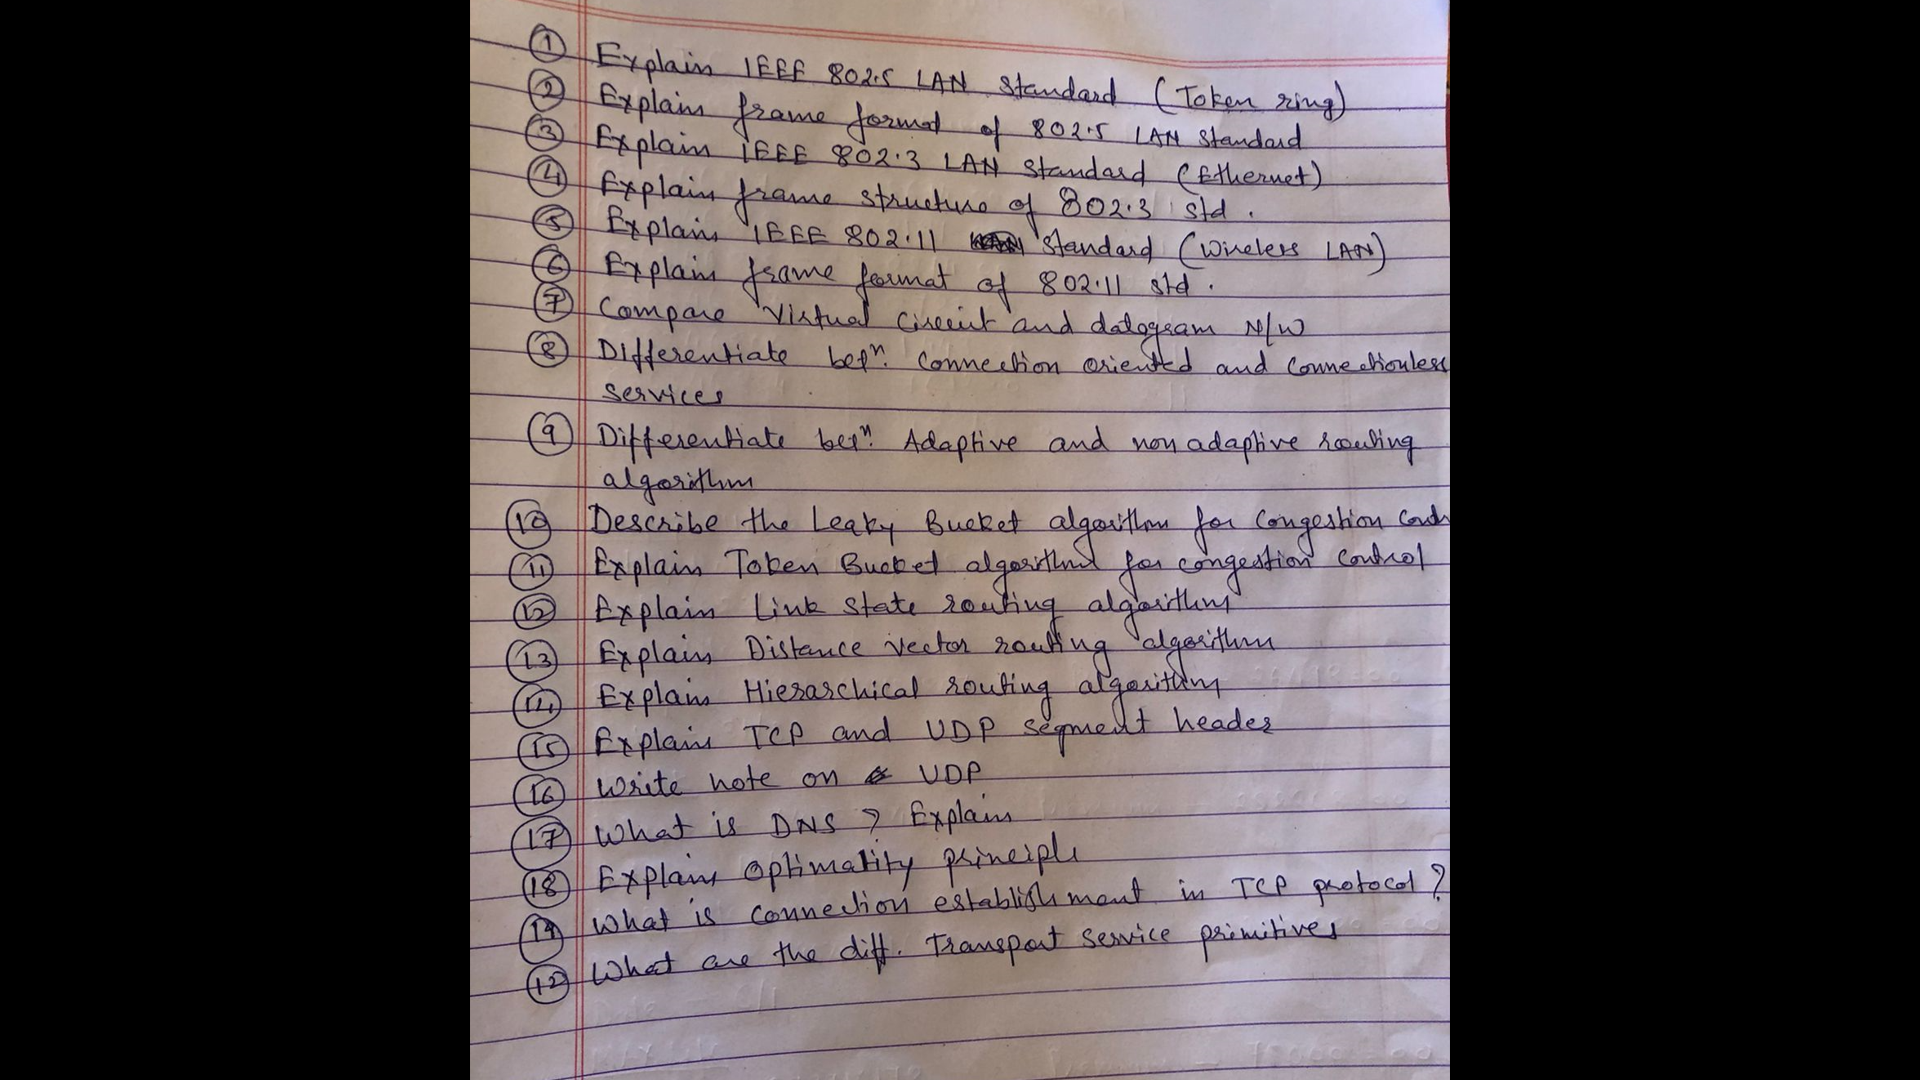 1 Explain IEEE 802.5 LAN Standard (Token ring)
2 Explain frame format of 802.5 LAN Standard
3 Explain IEEE 802.3 LAN Standard (Ethernet)
4 Explain frame structure of 802.3 std.
5 Explain IEEE 802.11 Standard (Wireless LAN)
6 Explain frame format of 802.11 std.
7 Compare Virtual Circuit and datagram N/W
8 Differentiate betn. Connection oriented and Connectionless
Services
9 Differentiate betn. Adaptive and non adaptive routing
algorithm
10 Describe the Leaky Bucket algorithm for Congestion Contr
11 Explain Token Bucket algorithm for congestion control
12 Explain Link state routing algorithm
13 Explain Distance vector routing algorithm
14 Explain Hierarchical routing algorithm
15 Explain TCP and UDP segment header
16 Write note on UDP
17 What is DNS? Explain
18 Explain Optimality principle
19 What is connection establishment in TCP protocol?
What are the diff. Transport service primitives